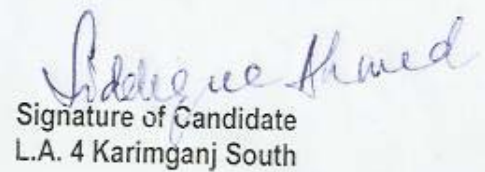 Siddeque Ahmed
Signature of Candidate
L.A. 4 Karimganj South